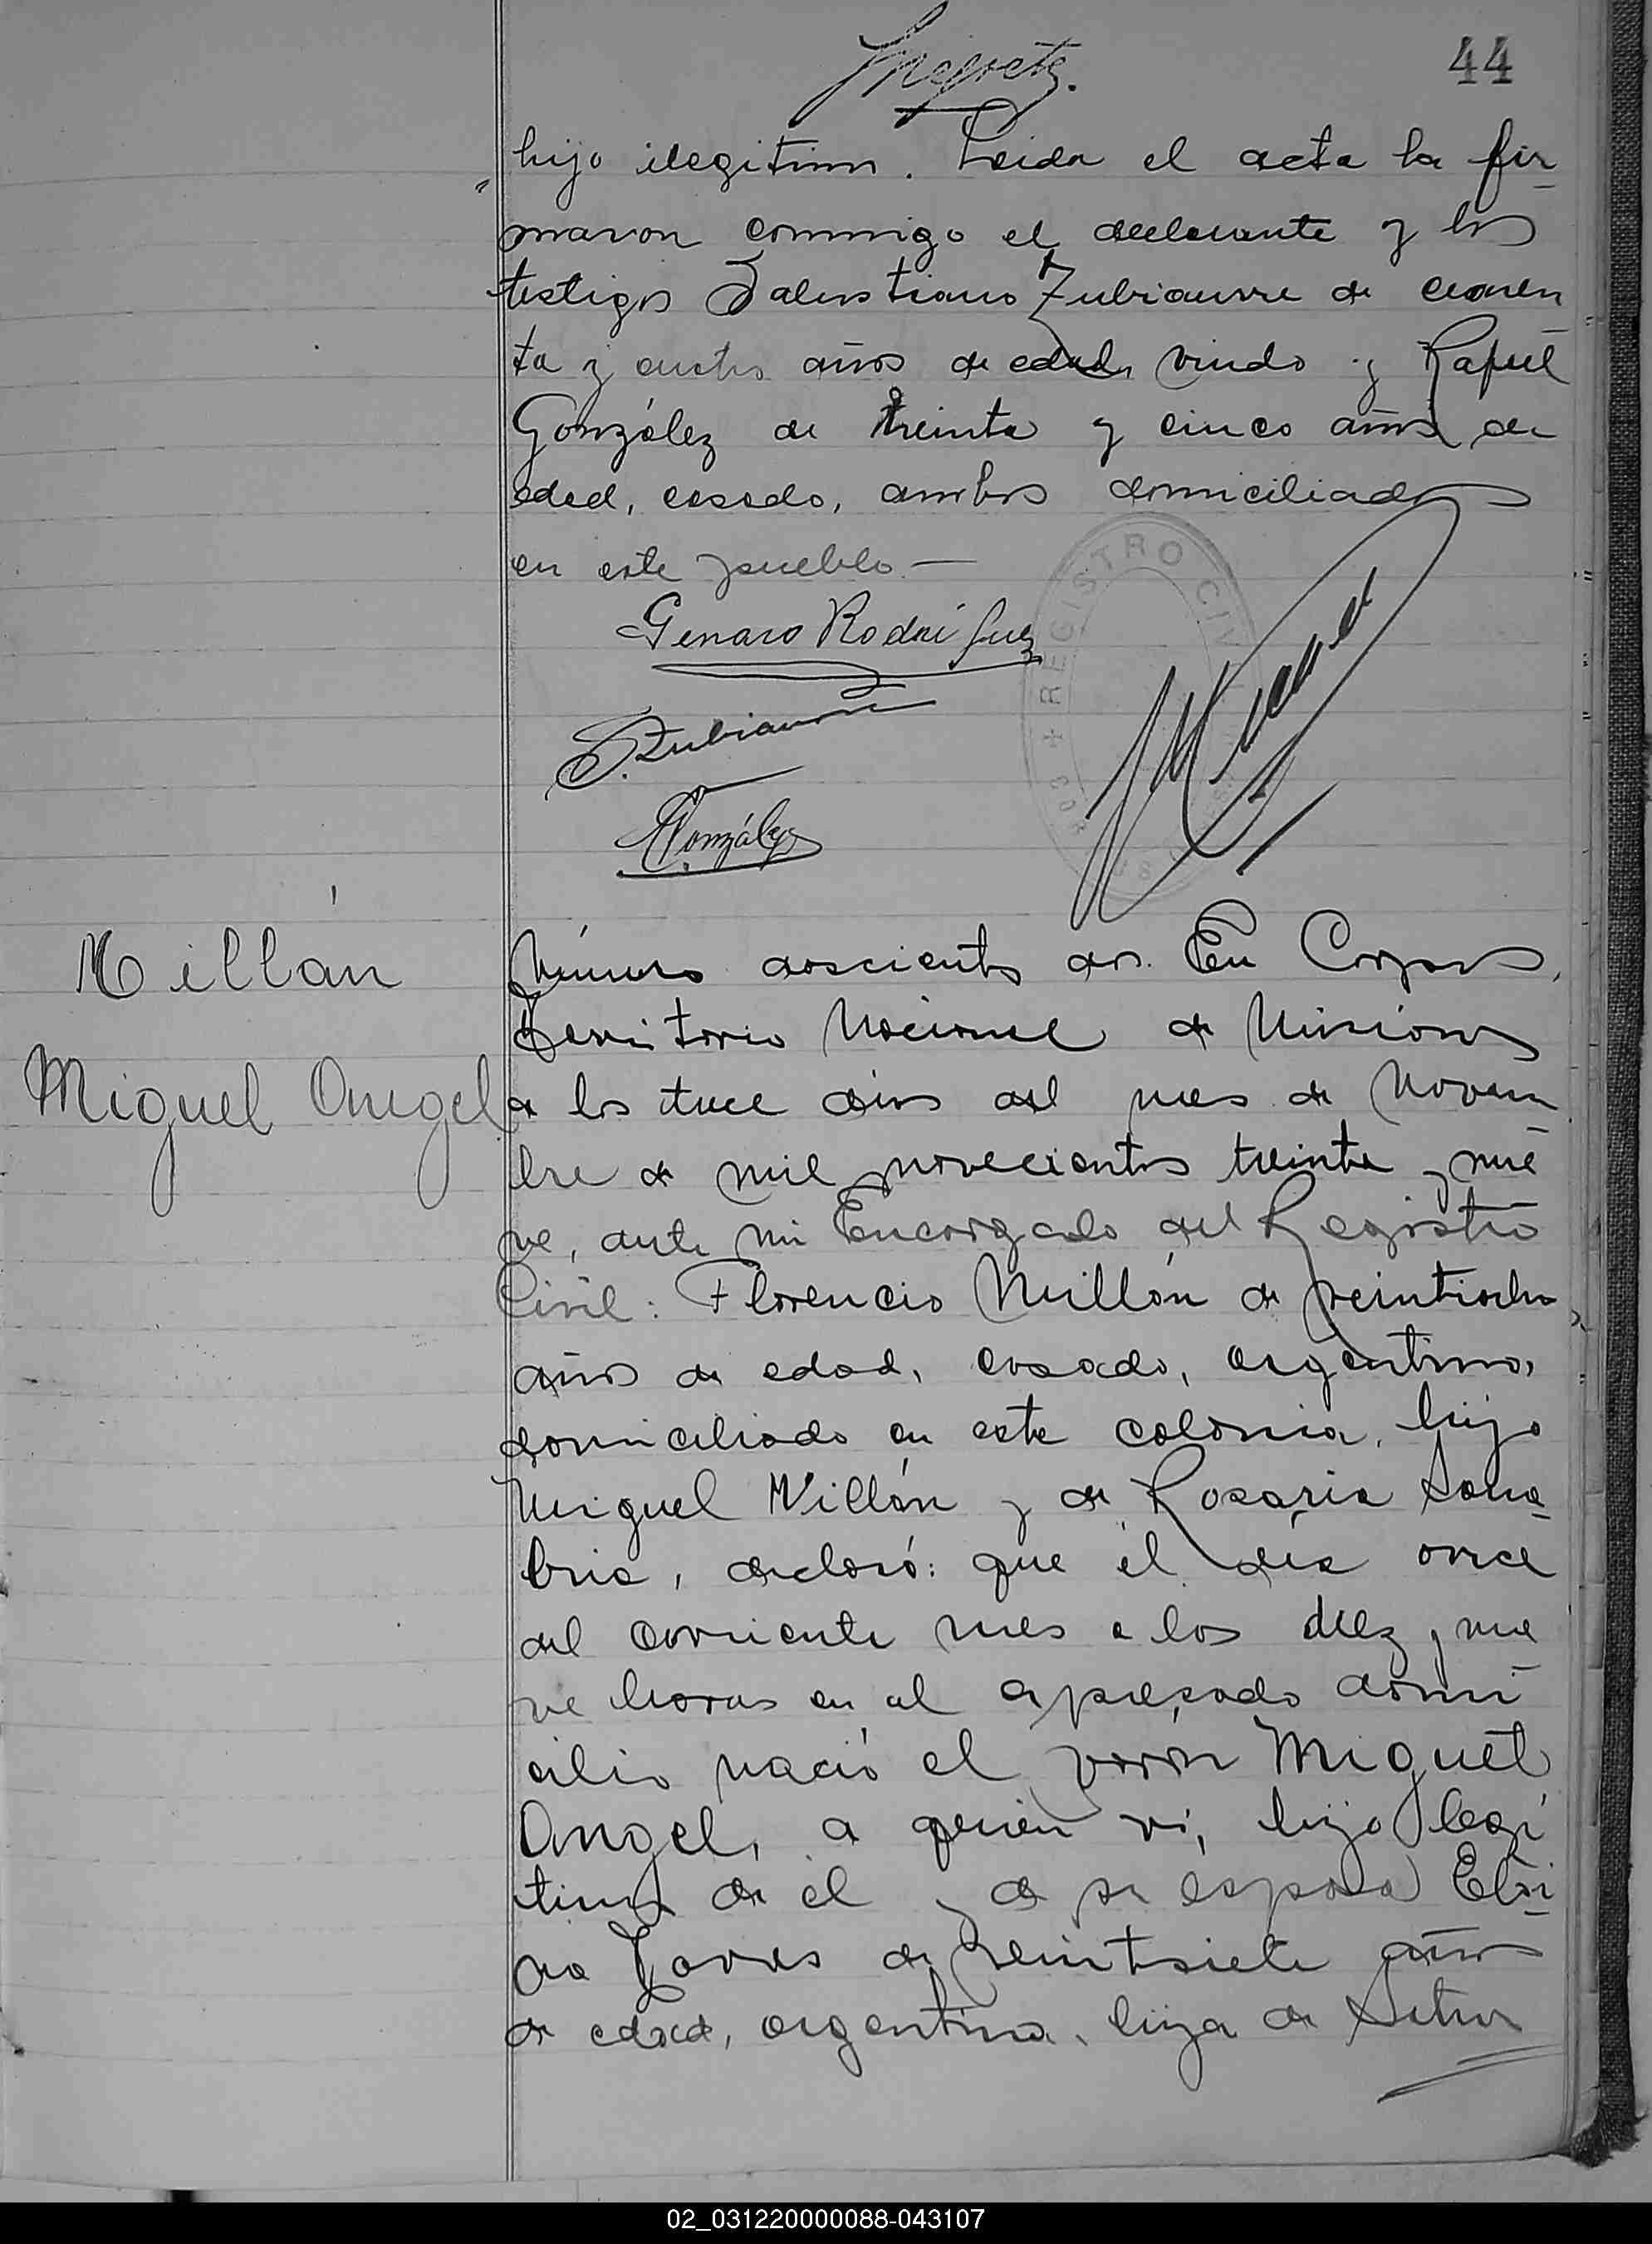 44
hijo ilegitimo. Leida el acta la fir
maron conmigo el declarante y los
testigos Salustiano Zubiaurre de cuaren
ta y cuatro años de edad, viudo y Rafael
González de treinta y cinco años de
edad, casado, ambos domiciliados
en este pueblo.—
REGISTRO CIVIL
Genaro Rodriguez
S. Zubiaurre
R. González
Millán
Miguel Angel
Número doscientos dos. En Corpus,
Territorio Nacional de Misiones
a los trece dias del mes de Noviem
bre de mil novecientos treinta y nue
ve, ante mi Encargado del Registro
Civil: Florencio Millán de veintiocho
años de edad, casado, argentino,
domiciliado en esta colonia, hijo
Miguel Millán y de Rosaria Sana
bria, declaró: que el día once
del corriente mes a las diez y nue
ve horas en el expresado domi
cilio nació el varón Miguel
Angel, a quien ví, hijo legí
timo de él y de su esposa
Torres de veintisiete años
de edad, argentina, hija de
02_031220000088-043107